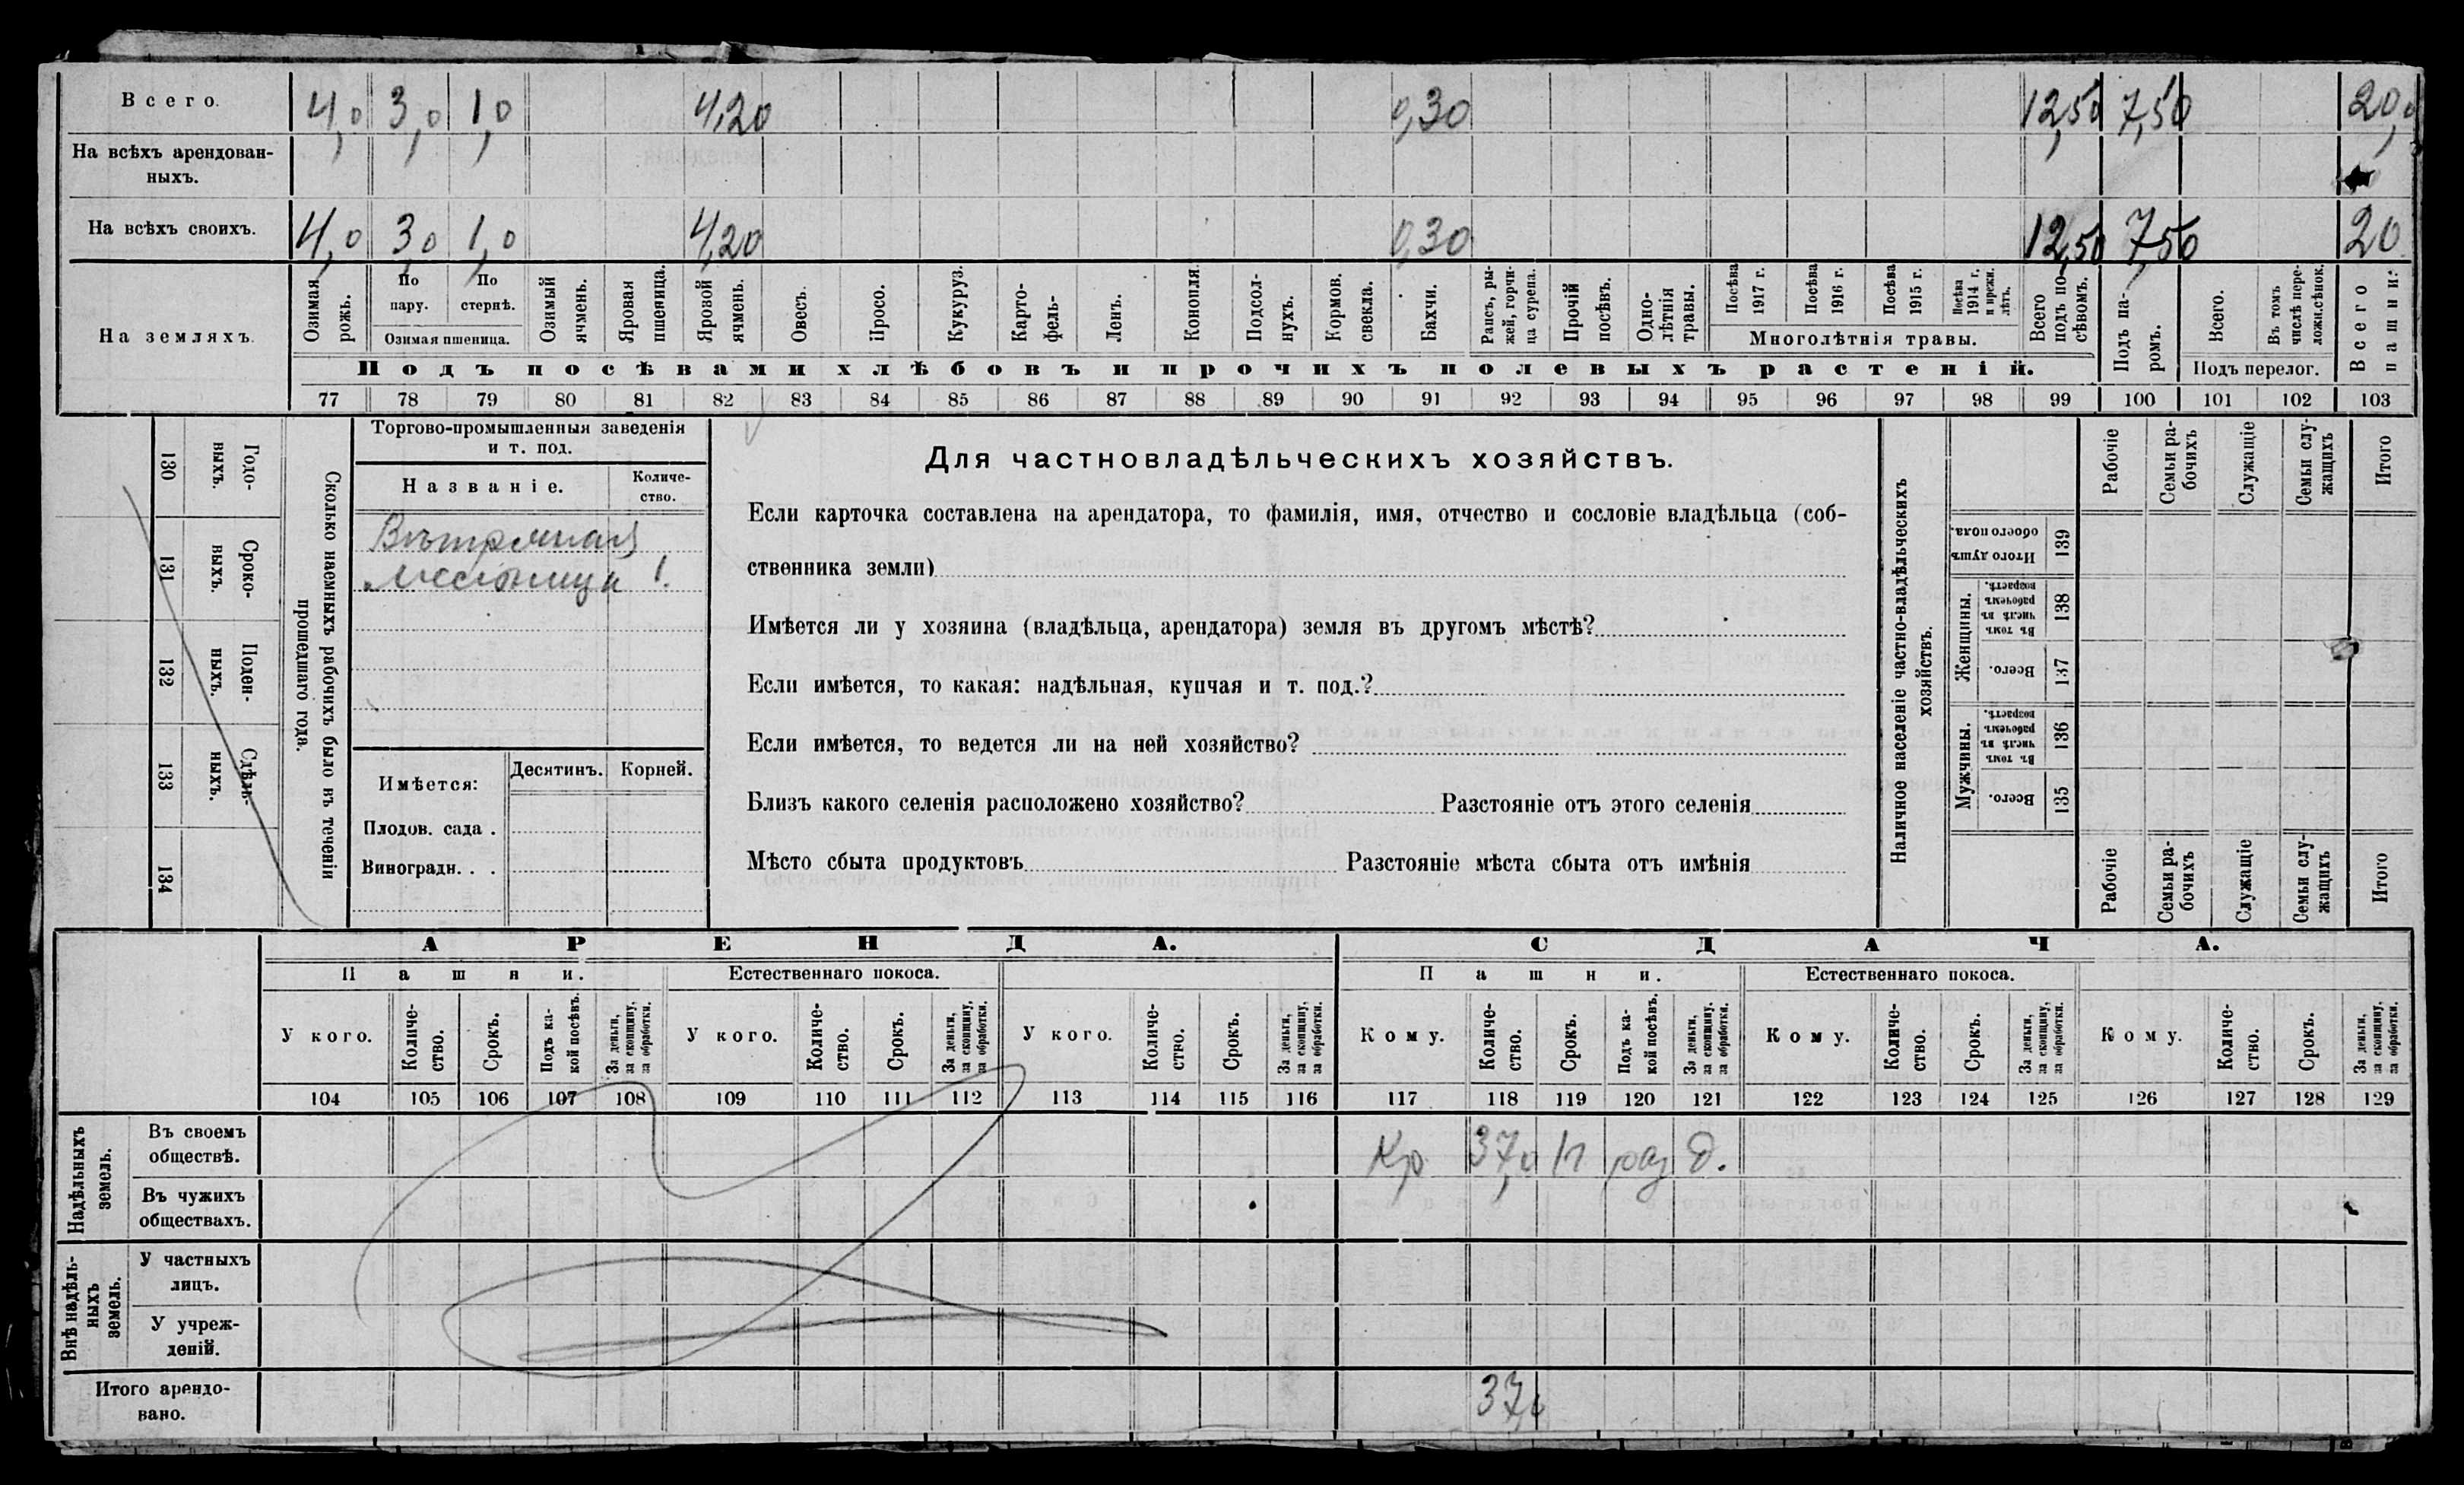 Всего. 4,0 3,0 1,0 4,20 0,30 12,50 7,50 20,0
На всѣхъ арендован-
ныхъ.
На всѣхъ своихъ. 4,0 3,0 1,0 4,20 0,30 12,50 7,50 20
На земляхъ.
Озимая рожь.
По пару.
По стернѣ.
Озимая пшеница.
Озимый ячмень.
Яровая пшеница.
Яровой ячмень.
Овесъ.
Просо.
Кукуруз.
Карто-
фель-
Ленъ.
Конопля.
Подсол-
нухъ.
Кормов. свекла.
Бахчи.
Рапсъ, ры-
жей, горчи-
ца сурепа.
Прочій посѣвъ.
Одно-
лѣтнія травы.
Посѣва 1917 г.
Посѣва 1916 г.
Посѣва 1915 г.
Посѣва 1914 г. и прежн. лѣтъ.
Многолѣтнія травы.
Всего подъ по-
сѣвомъ.
Подъ па-
ромъ.
Всего.
Въ томъ числѣ пере-
ложн.сѣнок.
Подъ перелог.
Всего пашни:
Подъ посѣвами хлѣбовъ и прочихъ полевыхъ растеній.
77 78 79 80 81 82 83 84 85 86 87 88 89 90 91 92 93 94 95 96 97 98 99 100 101 102 103
130 Годо-
ныхъ.
131 Сроко-
выхъ.
132 Поден-
ныхъ.
133 Сдѣль-
ныхъ.
134
Сколько наемныхъ рабочихъ было въ теченіи
прошедшаго года.
Торгово-промышленныя заведенія
и т. под.
Названіе.
Количе-
ство.
Вѣтряная
мельница 1.
Имѣется: Десятинъ. Корней.
Плодов. сада .
Виноградн. . .
Для частновладѣльческихъ хозяйствъ.
Если карточка составлена на арендатора, то фамилія, имя, отчество и сословіе владѣльца (соб-
ственника земли)
Имѣется ли у хозяина (владѣльца, арендатора) земля въ другомъ мѣстѣ?
Если имѣется, то какая: надѣльная, купчая и т. под.?
Если имѣется, то ведется ли на ней хозяйство?
Близъ какого селенія расположено хозяйство? Разстояніе отъ этого селенія
Мѣсто сбыта продуктовъ Разстояніе мѣста сбыта отъ имѣнія
Наличное населеніе частно-владѣльческихъ
хозяйствъ.
Рабочіе
Семьи ра-
бочихъ
Служащіе
Семьи слу-
жащихъ
Итого
Итого душъ обоего пола. 139
Женщины.
Въ томъ числѣ въ рабочемъ возрастѣ. 138
Всего. 137
Мужчины.
Въ томъ числѣ въ рабочемъ возрастѣ. 136
Всего. 135
Рабочіе
Семьи ра-
бочихъ
Служащіе
Семьи слу-
жащихъ
Итого
АРЕНДА. СДАЧА.
Пашни. Естественнаго покоса. Пашни. Естественнаго покоса.
У кого.
Количе-
ство.
Срокъ.
Подъ ка-
кой посѣвъ.
За деньги, за скопщину, за обработки.
У кого.
Количе-
ство.
Срокъ.
За деньги, за скопщину, за обработки.
У кого.
Количе-
ство.
Срокъ.
За деньги, за скопщину, за обработки.
Кому.
Количе-
ство.
Срокъ.
Подъ ка-
кой посѣвъ.
За деньги, за скопщину, за обработки.
Кому.
Количе-
ство.
Срокъ.
За деньги, за скопщину, за обработки.
Кому.
Количе-
ство.
Срокъ.
За деньги, за скопщину, за обработки.
104 105 106 107 108 109 110 111 112 113 114 115 116 117 118 119 120 121 122 123 124 125 126 127 128 129
Надѣльныхъ земель.
Въ своемъ
обществѣ. Кр 37,0 раз д.
Въ чужихъ
обществахъ.
Внѣ надѣль-
ныхъ земель.
У частныхъ
лицъ.
У учреж-
деній.
Итого арендо-
вано. 37,0